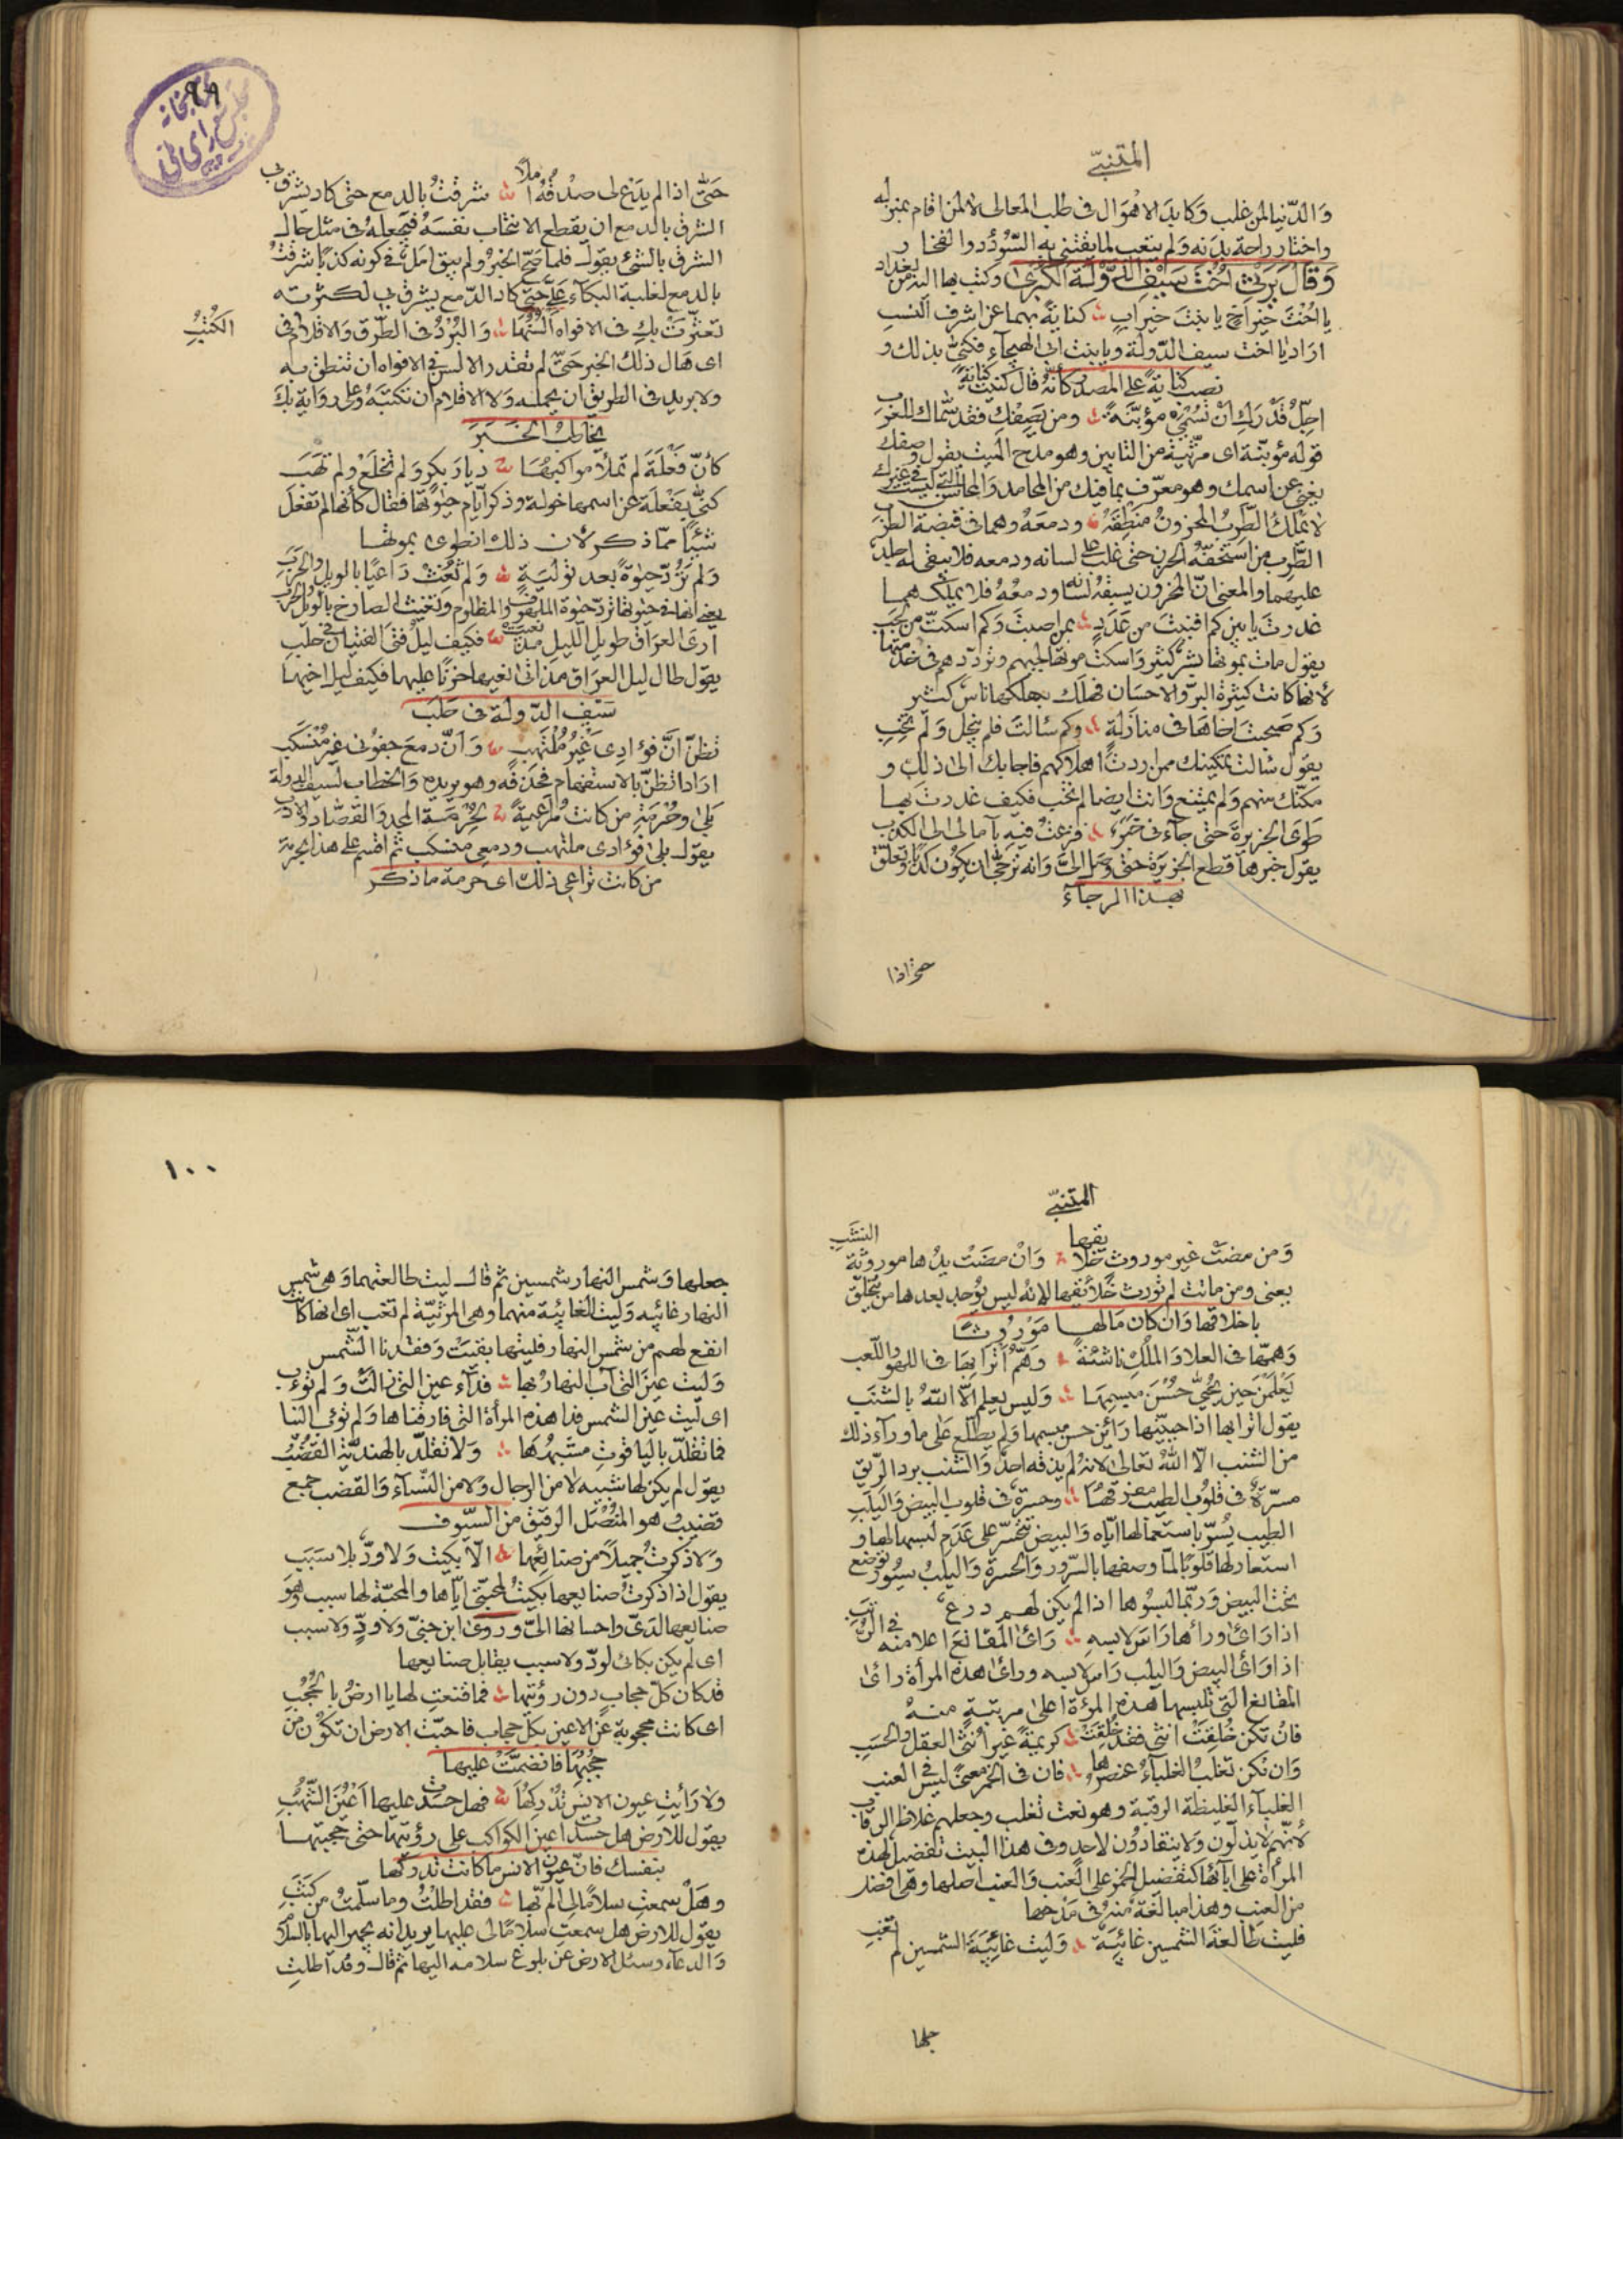 المتنبّي
وَالدّنيا لمن غلب وَكابدَ الاهْوَال في طلب المعالي لا لمن اقام بمنزله
واختار راحة بدَنه وَلم يتعب لما يقتني به السّوُدد والفخار
وَقَالَ يَرْثي اُخْتَ سَيْفِ الدَّوْلَة الكُبْرىٰ وكتب بها اليه من بغداد
يا اُخْتَ خَيْرِ اَخٍ يا بِنْتَ خَيْرِ ابٍ كنايَةً بهما عن اشرف النسب
اراد يا اخت سيف الدّولة ويا بنت ابي الهيجآءِ فكنىٰ بذلك و
نصب كنايةً على المصدر كأنّه قال كنيت كنايَةً
اجلّ قدْرَكِ اَنْ تُسْمَيْ مؤبّنةً ومن يَصِفْكِ فقد سَمّاك للعَرَب
قوله مؤبّنة اى مرْثيّة من التابين وهو مدح الميت يقول وصفك
يغني عن اسمك وهو معرّف بما فيك من المحامد وَالمحاسن التي ليست في غيرك
لا يملك الطَّرِبُ المحزونُ مَنطِقَهُ ودمعَهُ وهما في قبضة الطرَب
الطَّرِب من استخفّه الحزن حتى غلب على لسانه ودمعه فلا يبقى له
عليهما والمعنى انّ المحزون يسبقه لسانه ودمعُهُ فلا يملكهمــا
غدرتَ يا موت كم افنيتَ من عَدَدٍ بمن اصبتَ وَكم اسكتّ من لجَبِ
يقول مات بموتها بشر كثير وَاسكتَّ موتها لجبهم وتردّدهم في خدمتها
لأنها كانت كثيرة البرّ والاحسَان فهلك بهلكها ناسٌ كثير
وَكم صَحِبْتَ اخَاهَا في منازلةٍ وكم سَالتَ فلم يبخل وَلَم تَخِبِ
يقول سَالتَ تمكينك ممن اردتَ اهلاكهم فاجابك الى ذلك و
مكّنك منهم وَلم يمتنع وَانت ايضا لم تخب فكيف غدرت بهــا
طوَى الجزيرة حتى جآءَني خَبَرٌ فزعتُ فيهِ بآمالي الى الكذب
يقول خبرها قطع الجزيرَة حتى وصَل الىَّ وَانه ترجّى ان يكُون كذبًا وتعلّق
بهــذا الرجآءِ
حتى اذا

كتابخانه مجلس شوراى ملى
٩٩
حَتّىٰ اذا لم يدَع لي صِدْقُهُ املًا شرِقْتُ بالدمع حتى كاد يشرَق بي
الشرق بالدمع ان يقطع الانتحاب نفسَهُ فيجعله في مثل حال
الشرِق بالشئ يقول فلما صَحّ الخبرُ ولم يبق امَلٌ في كونه كذبًا شرقتُ
بالدمع لغلبة البكآءِ عَلَيّ حتى كاد الدّمع يشرق بي لكثرته
تعثّرَتْ بكِ في الافواه اَلسُنُهَا وَالبُرْدُ في الطُّرْق وَالاقلام في
الكُتُبِ
اى هَال ذلك الخبر حَتّىٰ لم تقدر الالسن في الافواه ان تنطق به
ولا بريد في الطريق ان يحمله وَلا الاقلام ان تكتبَهُ وعلى روَاية بكَ
يخاطب الخَــبَرَ
كأنّ فَعْلَةَ لم تملأ مواكبُهَا ديارَ بكرٍ وَلم تخلَع ولم تَهَبَ
كنىٰ بفَعْلة عن اسمها خولة وذكر أيّام حيٰوتها فقال كأنها لم تفعل
شيئًا ممّا ذكر لأن ذلك انطوى بموتهــا
وَلم تَرُدّ حيٰوةً بعد توليَةٍ وَلم تُغِثْ دَاعيًا بالويل والحَرَبِ
يعني انها في حيٰوتها تردّ حيٰوة الملهوف والمظلوم وتغيث الصارخ بالويل والحرب
ارىَ العرَاق طويل الليل مذ نعيت فكيف ليلُ فتى الفتيان في حلَبِ
يقول طال ليل العرَاق مذ اتى نعيها حزنًا عليها فكيف ليل اخيها
سَيْف الدّولة في حَلَب
تظنّ اَنّ فؤادِى غَيْرُ مُلْتَهِبٍ وَاَنّ دمعَ جفوني غيرُ مُنْسَكِبِ
اراد اتظنّ بالاستفهام فحذفه وهو يريده وَالخطاب لسيف الدولة
بَلىٰ وحُرْمَةِ مَن كانت مُراعيةً لحُرْمَةِ المجد وَالقصّاد والادب
يقول بلى فؤادى ملتهب ودمعي منسكب ثم اقسم على هذا بحرمة
من كانت تراعي ذلك اى حرمة ما ذكر

المتنبّي
وَمن مضَتْ غير موروثٍ خلائقها وَانْ مضَتْ يدُها موروثَةَ
النشَبِ
يعني ومن ماتت لم تورث خلائقها لانّه ليس يوُجد بعدها من يتخلّق
باخلاقها وَان كان مَالهــا مَوْروثــًا
وَهمّها في العلا وَالملك ناشئةً وَهَمُّ اَترابِهَا في اللهو واللّعب
يَعْلَمْن حين تُحَيّىٰ حُسْنَ مبسِمِهَا وَليس يعلم الّا اللّهُ بالشنَبِ
يقول اترابها اذا حيينها رَأين حسن مبسمها وَلم يطّلع على ما ورآءَ ذلك
من الشنب الّا اللّه تعَالىٰ لانه لم يذقه احدٌ وَالشنب برد الرّيق
مسرّةٌ في قلوُب الطيب مفرقهَا وحسرَةٌ في قلوب البيض وَاليَلَبِ
الطيب يُسَرّ باستعمالها ايّاه وَالبيض تتحسّر على عَدَم لبسها لها و
استعار لها قلوبًا لمّا وصفها بالسّرور وَالحسرة وَاليلبُ سيُور توضع
تحْت البيض وَربّما لبسُوها اذا لم يكن لهـم درع
اذا رَاىٰ ورآها رَاسَ لابسهِ رَاىٰ المَقَانعَ اعلا منه في الرُّتَبِ
اذا رَاىٰ البيض وَاليلب رَاس لابسه وراىٰ هذه المرأة رَاىٰ
المقانع التي تلبسها هذه المرءة اعلى مرتبة منــهُ
فانْ تكن خُلِقَتْ انثى فقد خُلِقَتْ كريمةً غيرَ اُنثَى العقل والحسَبِ
وَان تكن تغلبُ الغلبآءُ عنصرُها فان في الخمر معنىً ليس في العنب
الغلبآء الغليظة الرقبة وهو نعت تغلب وجعلهم غلاظ الرقاب
لأنهُم لا يذلّون وَلا ينقادُون لاحدٍ وفي هذا البيت تفضيل لهذه
المرأة على ابآئها كتفضيل الخمر على العنب وَالعنب اصلها وهي افضل
من العنب وهذا مبالغةٌ منه في مَدْحها
فليت طَالعَةَ الشمسين غائبَة وَليت غائبَةَ الشمسين لم تغبِ
جعلها

١٠٠
جعلها وَشمس النهار شمسين ثم قال ليت طالعتهما وَهي شمس
النهار غائبه وَليت الغائبة منهما وهي المرثيّة لم تغب اى انها كانت
انفع لهم من شمس النهار فليتها بقيَتْ وَفقدنا الشّمس
وَليت عينَ التي آبَ النهارُ بها فدآءُ عين التي زالتْ وَلم تؤب
اى ليت عَيْنَ الشمس فدا هذه المرأة التي فارقناها وَلم تؤب الينا
فما تقلّدَ باليَاقوتِ مشبهُهَا وَلا تقلّدَ بالهنديّة القُضُبِ
يقول لم يكن لها شبيه لا من الرجال وَلا من النّسآء وَالقضب جمع
قضيب وهو المنُصْل الرقيق من السيّوف
وَلا ذكرتُ جميلًا من صنائعها الّا بكيت وَلا ودٌّ بلا سَبَبِ
يقول اذا ذكرت صنايعها بكيت لمحبّتي ايّاها والمحبّة لها سبب وهُوَ
صنايعها لدَيّ واحسانها اليّ وروىٰ ابن جنيّ ولا ودٍّ ولا سبب
اى لم يكن بكائى لودّ وَلا سبب يقابل صنايعها
قد كان كلّ حجابٍ دون رؤيتها فما قنعتِ لها يا ارضُ بالحُجُبِ
اى كانت محجوبة عن الاعين بكلّ حجاب فاحبّت الارض ان تكوُن من
حُجُبِها فانضمّتْ عليها
ولا رَأيتِ عيونَ الانس تُدْركُهَا فهل حسدْتِ عليها اَعْيُنَ الشُّهُبِ
يقول للارض هل حسدت اعين الكواكب على رؤيتها حتى حجبتهــا
بنفسك فانّ عيون الانس ما كانت تدركها
وهَلْ سمعتِ سلامًا لي المّ بها فقد اطَلْتُ وما سلّمتُ من كَثَبِ
يقول للارض هل سمعتِ سَلامًا لي عليها يريد انه يجهر اليها بالسلام
وَالدعآء وسئل الارض عن بلوغ سلامه اليها ثم قال وقد اطلت